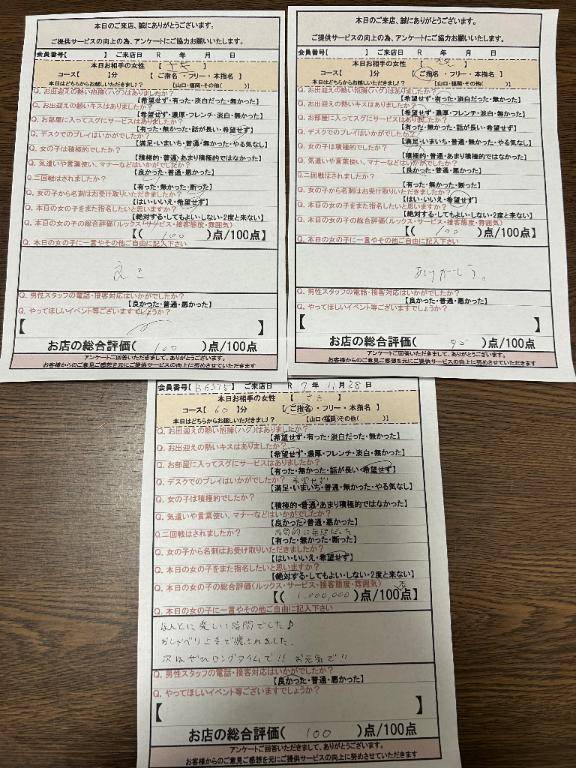 本日のご来店、誠にありがとうございます。
ご提供サービスの向上の為、アンケートにご協力お願いいたします。
会員番号【 】 ご来店日 R 年 月 日
本日お相手の女性 【 】
コース【 】分 【ご指名・フリー・本指名】
本日はどちらからお越しいただきました!? 【山口・福岡・その他( )】
Q. お出迎えの熱い抱擁(ハグ)はありましたか?
【希望せず・有った・淡白だった・無かった】
Q. お出迎えの熱いキスはありましたか?
【希望せず・濃厚・フレンチ・淡白・無かった】
Q. お部屋に入ってスグにサービスはありましたか?
【有った・無かった・話が長い・希望せず】
Q. デスクでのプレイはいかがでしたか?
【満足・いまいち・普通・無かった・やる気なし】
Q. 女の子は積極的でしたか?
【積極的・普通・あまり積極的ではなかった】
Q. 気遣いや言葉使い、マナーなどはいかがでしたか?
【良かった・普通・悪かった】
Q. 二回戦はされましたか?
【有った・無かった・断った】
Q. 女の子から名刺はお受け取りいただきましたか?
【はい・いいえ・希望せず】
Q. 本日の女の子をまた指名したいと思いますか?
【絶対する・してもよい・しない・2度と来ない】
Q. 本日の女の子の総合評価(ルックス・サービス・接客態度・雰囲気)
【( 100 )点/100点】
Q. 本日の女の子に一言やその他ご自由に記入下さい
Q. 男性スタッフの電話・接客対応はいかがでしたか?
【良かった・普通・悪かった】
Q. やってほしいイベント等ございますでしょうか?
【 】
お店の総合評価( 100 )点/100点
アンケートご回答いただきまして、ありがとうございます。
お客様からのご意見ご感想を元にご提供サービスの向上に努めさせていただきます
本日のご来店、誠にありがとうございます。
ご提供サービスの向上の為、アンケートにご協力お願いいたします。
会員番号【 】 ご来店日 R 年 月 日
本日お相手の女性 【 】
コース【 】分 【ご指名・フリー・本指名】
本日はどちらからお越しいただきました!? 【山口・福岡・その他( )】
Q. お出迎えの熱い抱擁(ハグ)はありましたか?
【希望せず・有った・淡白だった・無かった】
Q. お出迎えの熱いキスはありましたか?
【希望せず・濃厚・フレンチ・淡白・無かった】
Q. お部屋に入ってスグにサービスはありましたか?
【有った・無かった・話が長い・希望せず】
Q. デスクでのプレイはいかがでしたか?
【満足・いまいち・普通・無かった・やる気なし】
Q. 女の子は積極的でしたか?
【積極的・普通・あまり積極的ではなかった】
Q. 気遣いや言葉使い、マナーなどはいかがでしたか?
【良かった・普通・悪かった】
Q. 二回戦はされましたか?
【有った・無かった・断った】
Q. 女の子から名刺はお受け取りいただきましたか?
【はい・いいえ・希望せず】
Q. 本日の女の子をまた指名したいと思いますか?
【絶対する・してもよい・しない・2度と来ない】
Q. 本日の女の子の総合評価(ルックス・サービス・接客態度・雰囲気)
【( 100 )点/100点】
Q. 本日の女の子に一言やその他ご自由に記入下さい
ありがとう。
Q. 男性スタッフの電話・接客対応はいかがでしたか?
【良かった・普通・悪かった】
Q. やってほしいイベント等ございますでしょうか?
【 】
お店の総合評価( 90 )点/100点
アンケートご回答いただきまして、ありがとうございます。
お客様からのご意見ご感想を元にご提供サービスの向上に努めさせていただきます
会員番号【 B6375 】 ご来店日 R 7 年 11 月 28 日
本日お相手の女性 【 】
コース【 60 】分 【ご指名・フリー・本指名】
本日はどちらからお越しいただきました!? 【山口・福岡・その他( )】
Q. お出迎えの熱い抱擁(ハグ)はありましたか?
【希望せず・有った・淡白だった・無かった】
Q. お出迎えの熱いキスはありましたか?
【希望せず・濃厚・フレンチ・淡白・無かった】
Q. お部屋に入ってスグにサービスはありましたか?
【有った・無かった・話が長い・希望せず】
Q. デスクでのプレイはいかがでしたか? 希望せず
【満足・いまいち・普通・無かった・やる気なし】
Q. 女の子は積極的でしたか?
【積極的・普通・あまり積極的ではなかった】
Q. 気遣いや言葉使い、マナーなどはいかがでしたか?
【良かった・普通・悪かった】
Q. 二回戦はされましたか?
【有った・無かった・断った】
Q. 女の子から名刺はお受け取りいただきましたか?
【はい・いいえ・希望せず】
Q. 本日の女の子をまた指名したいと思いますか?
【絶対する・してもよい・しない・2度と来ない】
Q. 本日の女の子の総合評価(ルックス・サービス・接客態度・雰囲気)
【( 1,000,000 )点/100点】
Q. 本日の女の子に一言やその他ご自由に記入下さい
ほんとに楽しい時間でした♪
おしゃべり上手で癒されました。
次はぜひロングタイムで!! お元気で!!
Q. 男性スタッフの電話・接客対応はいかがでしたか?
【良かった・普通・悪かった】
Q. やってほしいイベント等ございますでしょうか?
【 】
お店の総合評価( 100 )点/100点
アンケートご回答いただきまして、ありがとうございます。
お客様からのご意見ご感想を元にご提供サービスの向上に努めさせていただきます